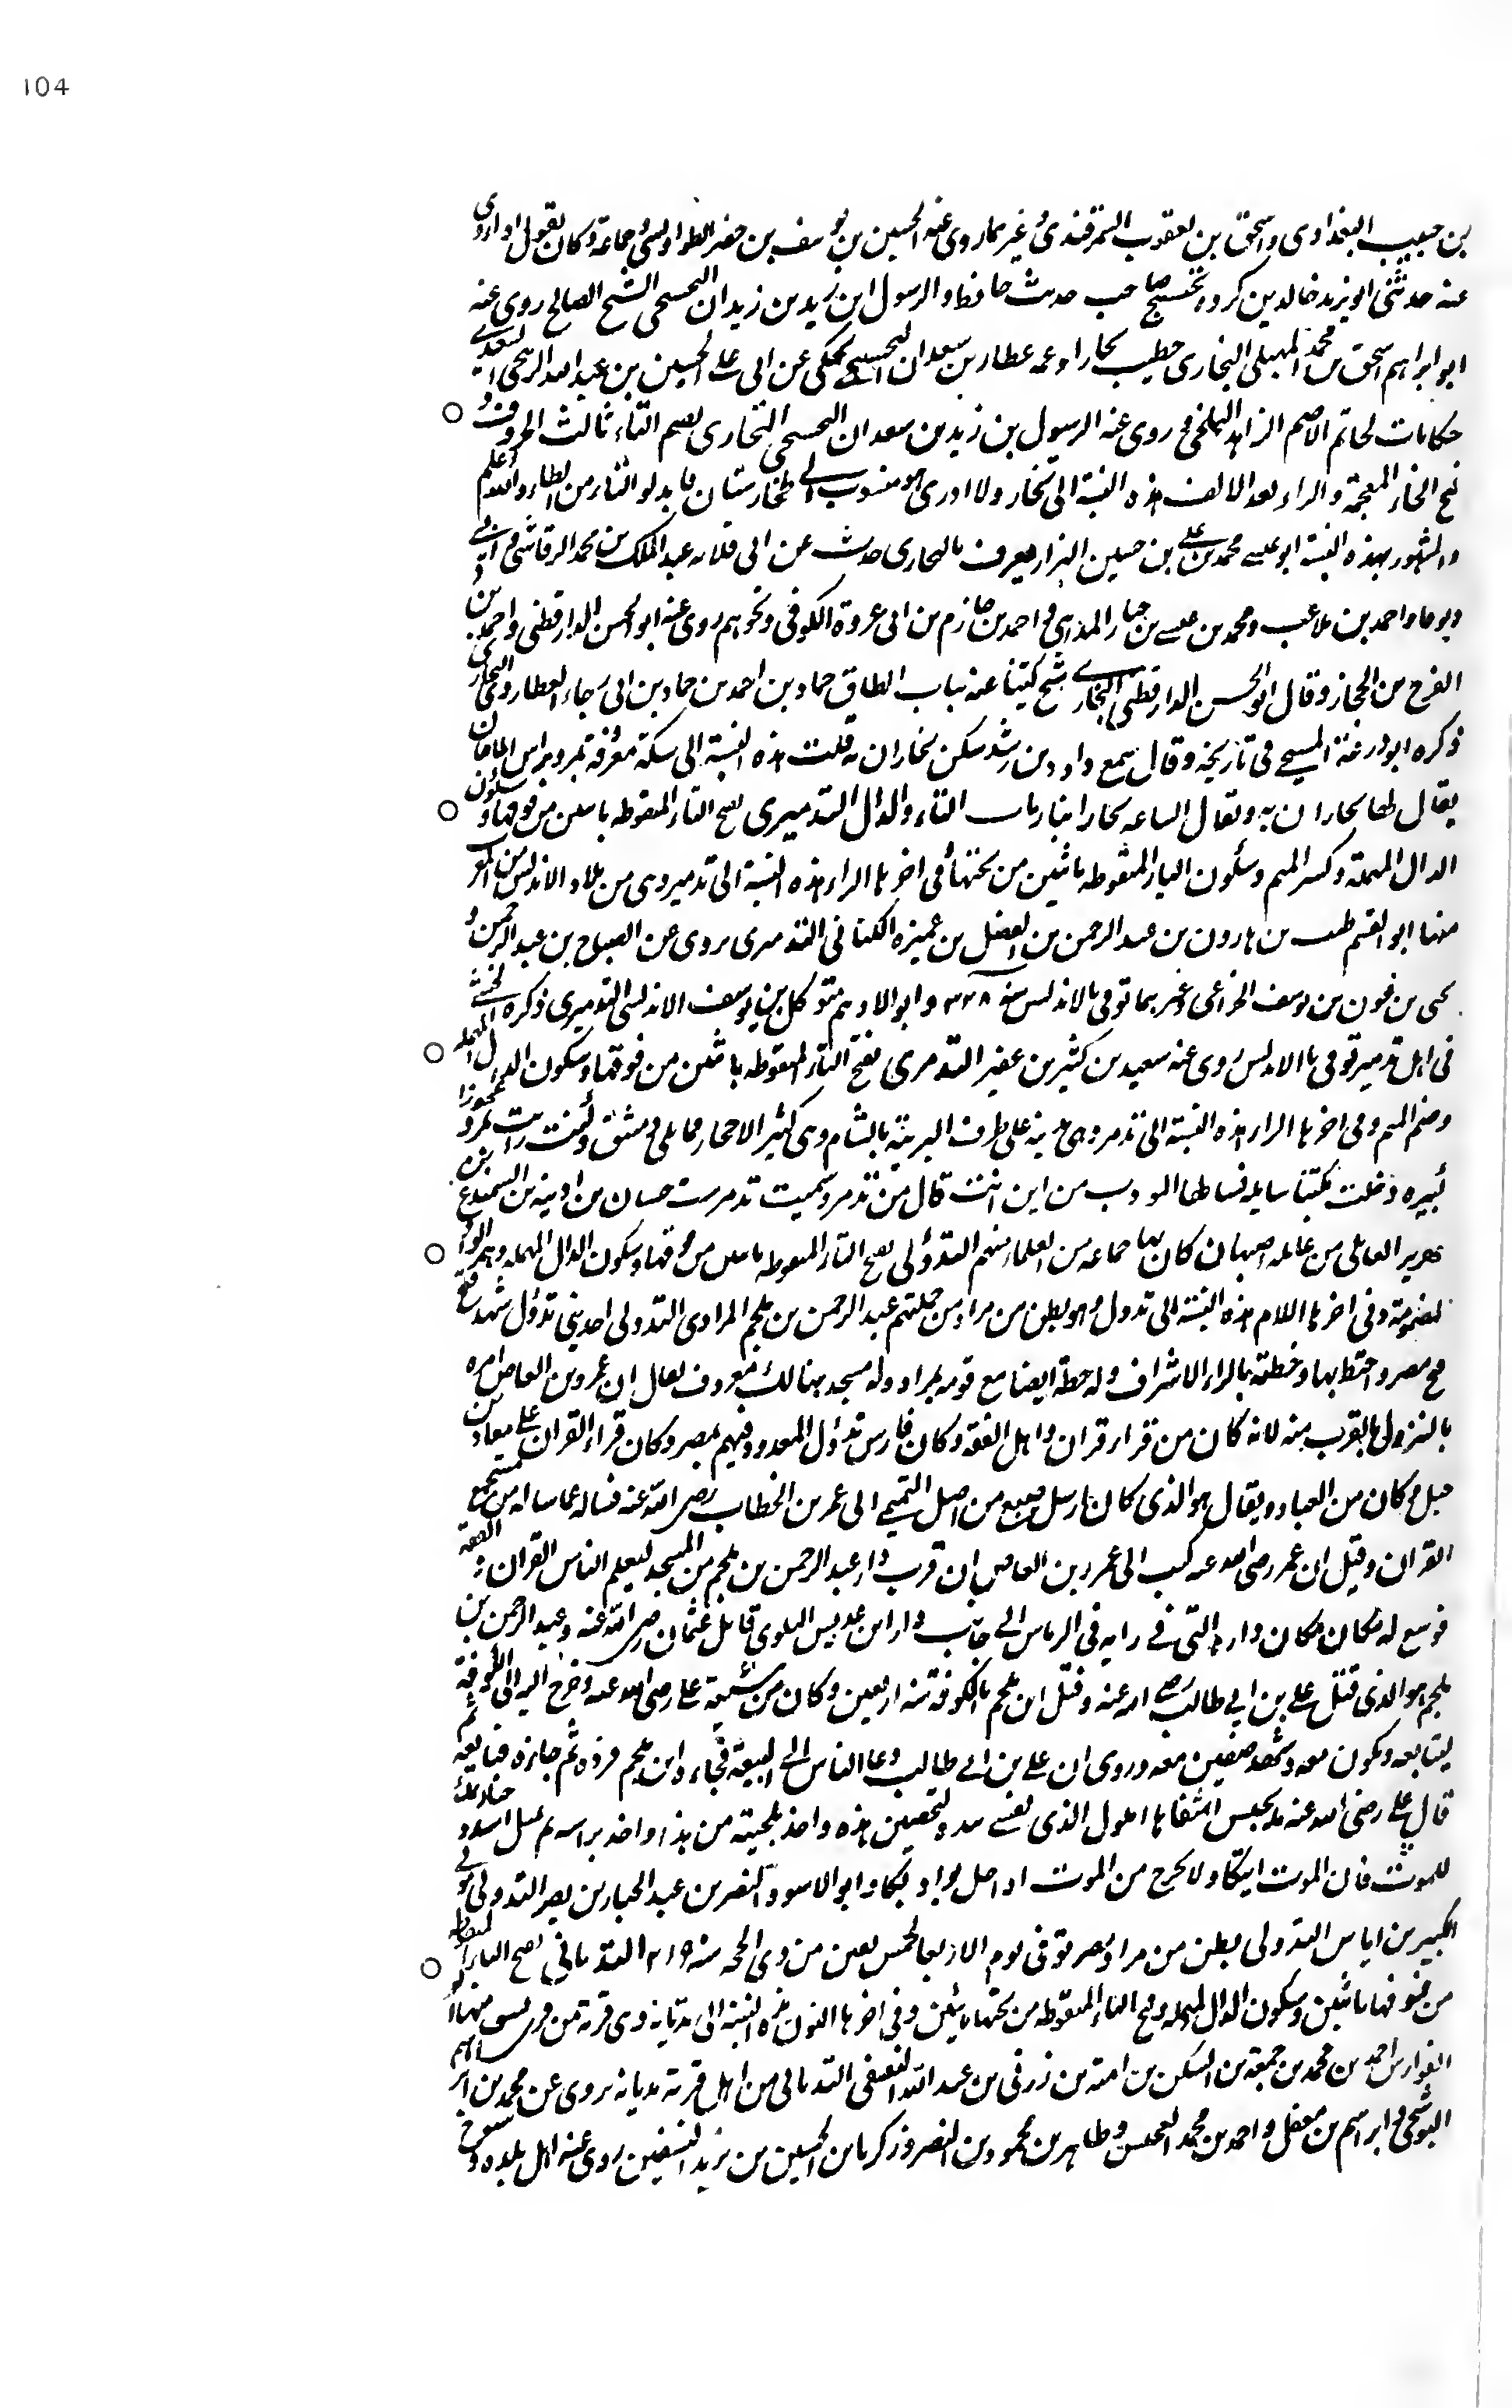 104
بن حبيب البغدادى واسحق بن يعقوب السمرقندى وغيرهما روى عنه الحسين بن يوسف بن خضر الطواويسى وجماعة وكان يقول اذا روى
عنه حدثنى ابو يزيد خالد بن كرده بخسيج صاحب حديث حافظ والرسول ابن زيد بن زيدان التحسيحى الشيخ الصالح روى عنه
ابو ابراهيم اسحق بن محمد المهبلى البخارى خطيب بخارا وعمه عطار بن سعدان التحسيجى يحكى عن ابى على الحسين بن عبد الله
حكايات لحاتم الاصم الزاهد البلخى روى عنه الرسول بن زيد بن سعدان التحسيجى التخارى بضم التاء ثالث الحروف و
فتح الخاء المعجمة والراء بعد الالف هذه النسبة الى تخار ولا ادرى هو منسوب الى طخارستان فابدلوا التاء من الطاء والله اعلم
والمشهور بهذه النسبة ابو عيسى محمد بن على بن حسين البزار يعرف بالتخارى حدث عن ابى قلابه عبد الملك بن محمد الرقاشى و
واحمد بن ملاعب ومحمد بن عيسى بن حيان المداينى واحمد بن حازم بن ابى عروة الكوفى ونحوهم روى عنه ابو الحسن الدارقطنى واحمد بن
الفرج بن الحجاز وقال ابو الحسن الدارقطنى التخارى شيخ كتبنا عنه بباب الطاق حماد بن احمد بن حماد بن ابى رجاء العطاردى التخارى
ذكره ابو زرعة السنجى فى تاريخه وقال سمع داود بن رشد سكن تخاران به قلت هذه النسبة الى سكة معروفة بمرو براس الماخان
يقال لها تخاران به ويقال الساعه بخارا باب التاء والدال التدميرى بضم التاء المنقوطه باثنين من فوقها وسكون
الدال المهملة وكسر الميم وسكون الياء المنقوطه باثنين من تحتها فى اخرها الراء هذه النسبة الى تدمير وهى من بلاد الاندلس من
منها ابو القسم طيب بن هارون بن عبد الرحمن بن الفضل بن عميره الكنانى التدميرى يروى عن الصباح بن عبد الرحمن و
يحيى بن عون بن يوسف الخزاعى وغيرهما توفى بالاندلس سنه ٣٢٨ وابو الادهم متوكل بن يوسف الاندلسى التدميرى ذكره الخشنى
فى اهل تدمير توفى بالاندلس روى عنه سعيد بن كثير بن عفير التدمرى بفتح التاء المنقوطه باثنين من فوقها وسكون الدال المهمله
وضم الميم وفى اخرها الراء هذه النسبة الى تدمر وهى مدينه على طرف البرية بالشام وهى كثير الاحجار مما يلى دمشق وكنت رايت بمرو عجوزا
كبيره دخلت مكتبنا سايله فسالها المودب من اين انت قال من تدمر وسميت تدمر بنت حسان بن اذينه بن السميدع بن
هريز العاملى من عامله اصبهان كان بها جماعه من العلماء منهم التدؤلى بفتح التاء المنقوطه باثنين من فوقها وسكون الدال المهمله وهمز الواو
المضمومة وفى اخرها اللام هذه النسبة الى تدول وهو بطن من مراد من جملتهم عبد الرحمن بن ملجم المرادى التدولى احد بنى تدؤل شهد
فتح مصر واختط بها وخطته بالراء الاشراف وله خطة ايضا مع قومه بمراد وله مسجد هنالك معروف يقال ان عمرو بن العاص امره
بالنزول بالقرب منه لانه كان من قراء قران واهل الفقه وكان فارس تدؤل المعدود فيهم بمصر وكان قراء القران على معاذ بن
جبل وكان من العباد ويقال هو الذى كان ارسل صبيغ بن اصل التميمى الى عمر بن الخطاب رضى الله عنه فساله عما ساله من مستعجم
القران وقيل ان عمر رضى الله عنه كتب الى عمرو بن العاص ان قرب دار عبد الرحمن بن ملجم من المسجد ليعلم الناس القران والفقه
فوسع له مكان مكان داره التى فى رايه فى الرماس الى جانب دار ابن عديس البلوى قاتل عثمان رضى الله عنه وعبد الرحمن بن
ملجم هو الذى قتل على بن ابى طالب رضى الله عنه وقتل ابن ملجم بالكوفة سنه اربعين وكان من شيعة على رضى الله عنه وخرج اليه الى الكوفة
ليتابعه ويكون معه وشهد صفين معه وروى ان على بن ابى طالب دعا الناس الى البيعة فجاءه ابن ملجم فرده ثم جاءه فبايعه ثم
قال على رضى الله عنه ما يحبس اشقاها اما والذى نفسى بيده لتخضبن هذه واخذ بلحيته من هذا واخذ براسه ثم تمثل اشدد حيازيمك
للموت فان الموت اتيكا ولا تجزع من الموت اذا حل بواديكا وابو الاسود النضر بن عبد الجبار بن نصر التدولى
الكبير بن اياس التدولى بطن من مراد بصر توفى يوم الاربعا لخمس بقين من ذى الحجه سنه ٢١٩ التديانى بفتح التاء المنقوطه
من فوقها باثنين وسكون الدال المهمله وفتح الياء المنقوطه من تحتها باثنين وفى اخرها النون هذه النسبة الى تديانه وهى قرية من قرى نسف منها ابو
الفوارس احمد بن محمد بن جمعة بن السكن بن امية بن زرقى بن عبد الله النسفى التديانى من اهل قرية تديانه يروى عن محمد بن ابراهيم
البوشنجى وابراهيم بن معقل واحمد بن محمد وطاهر بن محمود بن النضر وزكريا بن الحسين بن يزيد النسفيين روى عنه اهل بلده و